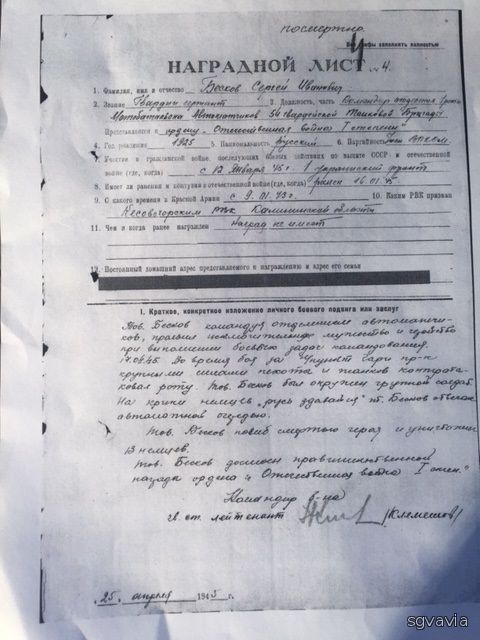 посмертно
Все графы заполнять полностью
НАГРАДНОЙ ЛИСТ № 4.
1. Фамилия, имя и отчество Бесков Сергей Иванович
2. Звание Гвардии сержант 3. Должность, часть Командир отделения
Мотобатальона Автоматчиков 54 Гвардейской Танковой Бригады
Представляется к ордену "Отечественная война I степени"
4. Год рождения 1925 5. Национальность Русский 6. Партийность член ВЛКСМ
7. Участие в гражданской войне, последующих боевых действиях по защите СССР и отечественной
войне (где, когда) с 12 января 45 г. 1 Украинский фронт
8. Имеет ли ранения и контузии в отечественной войне (где, когда) ранен 16.01.45
9. С какого времени в Красной Армии с 9.01.43г. 10. Каким РВК призван
Кесовогорским РВК Калининской области
11. Чем и когда ранее награжден Наград не имеет
12. Постоянный домашний адрес представляемого к награждению и адрес его семьи
I. Краткое, конкретное изложение личного боевого подвига или заслуг
Тов. Бесков командуя отделением автоматчи-
ков, проявил исключительно мужество и геройство
при выполнении боевых задач командования.
Во время боя за пр-к
крупными силами пехоты и танков контрата-
ковал роту. Тов. Бесков был окружен группой солдат.
На крики немцев "русь здавайся" т. Бесков отвечал
автоматной очередью.
Тов. Бесков погиб смертью героя уничтожив
13 немцев.
Тов. Бесков достоин правительственной
награды ордена "Отечественная война I степ."
Командир б-на
гв. ст. лейтенант /Клемешов/
"25" апреля 1945 г.
sgvavia